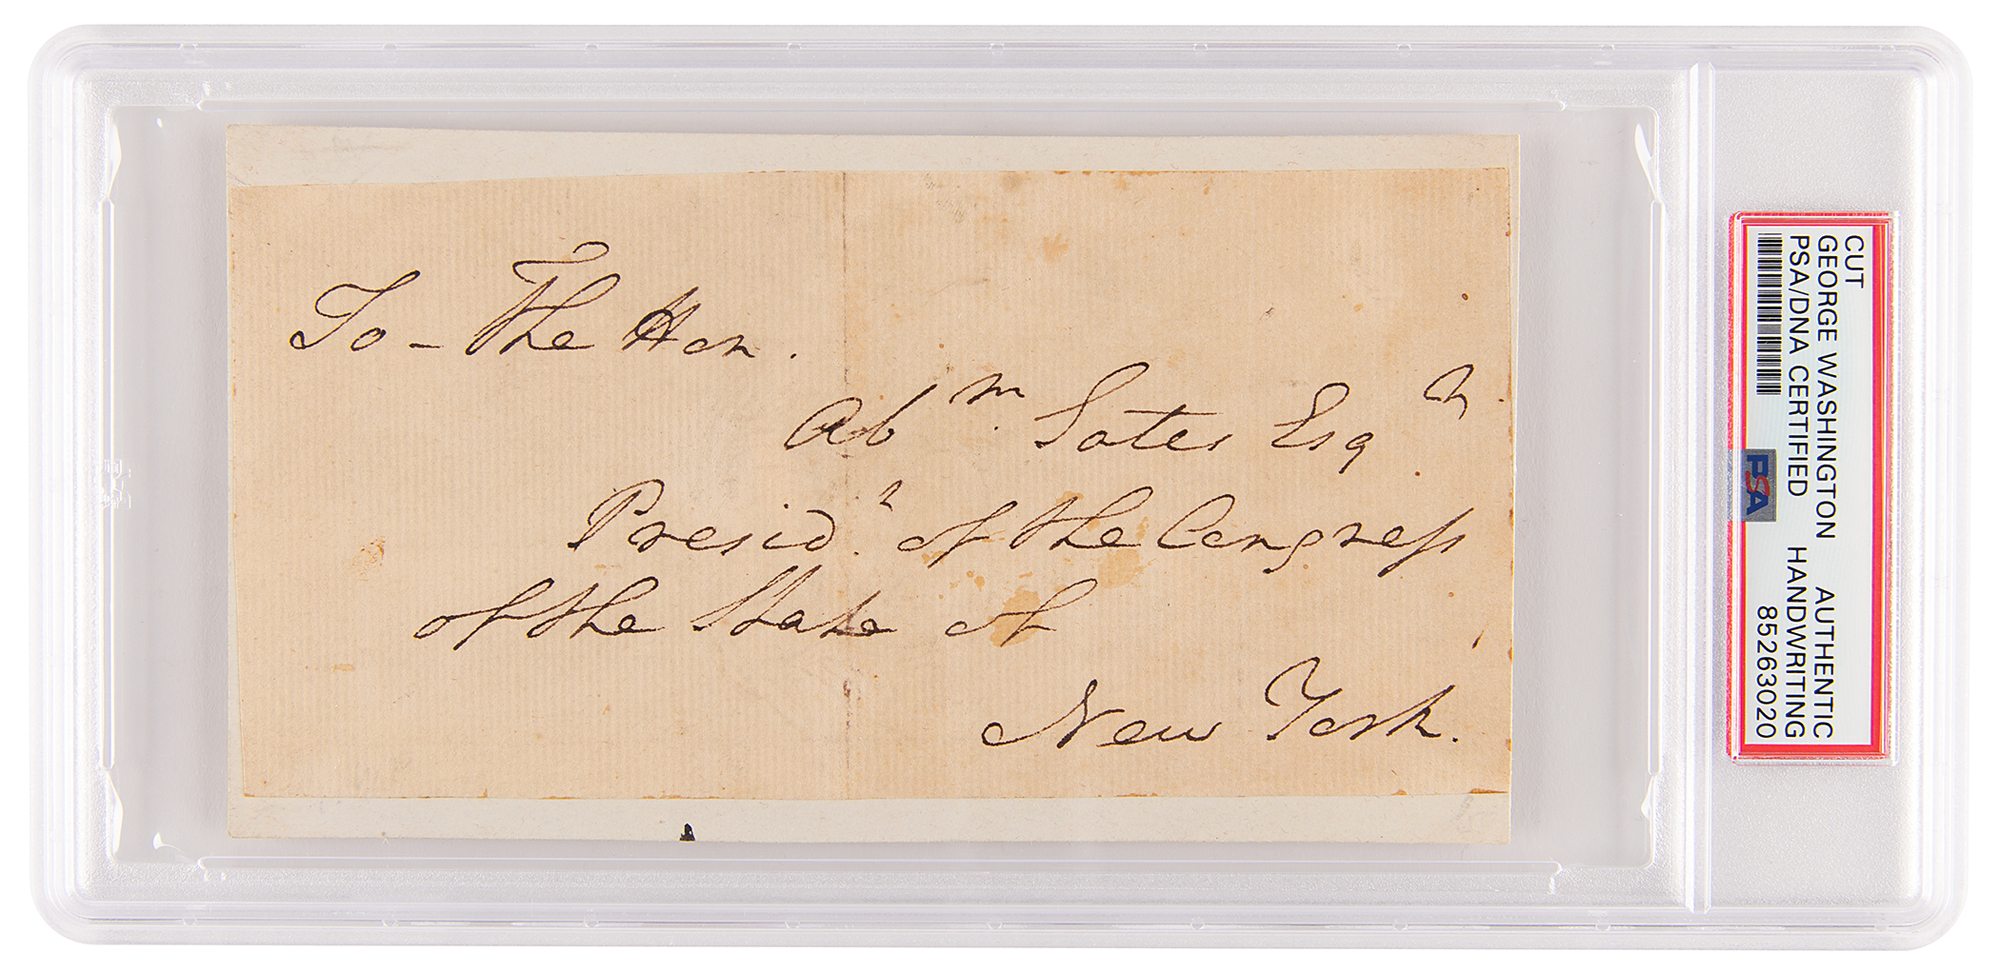 To - The Hon.
Abm. Yates Esqr.
Presidt. of the Congress
of the State of
New York.
CUT
GEORGE WASHINGTON AUTHENTIC
PSA/DNA CERTIFIED HANDWRITING
85263020
PSA